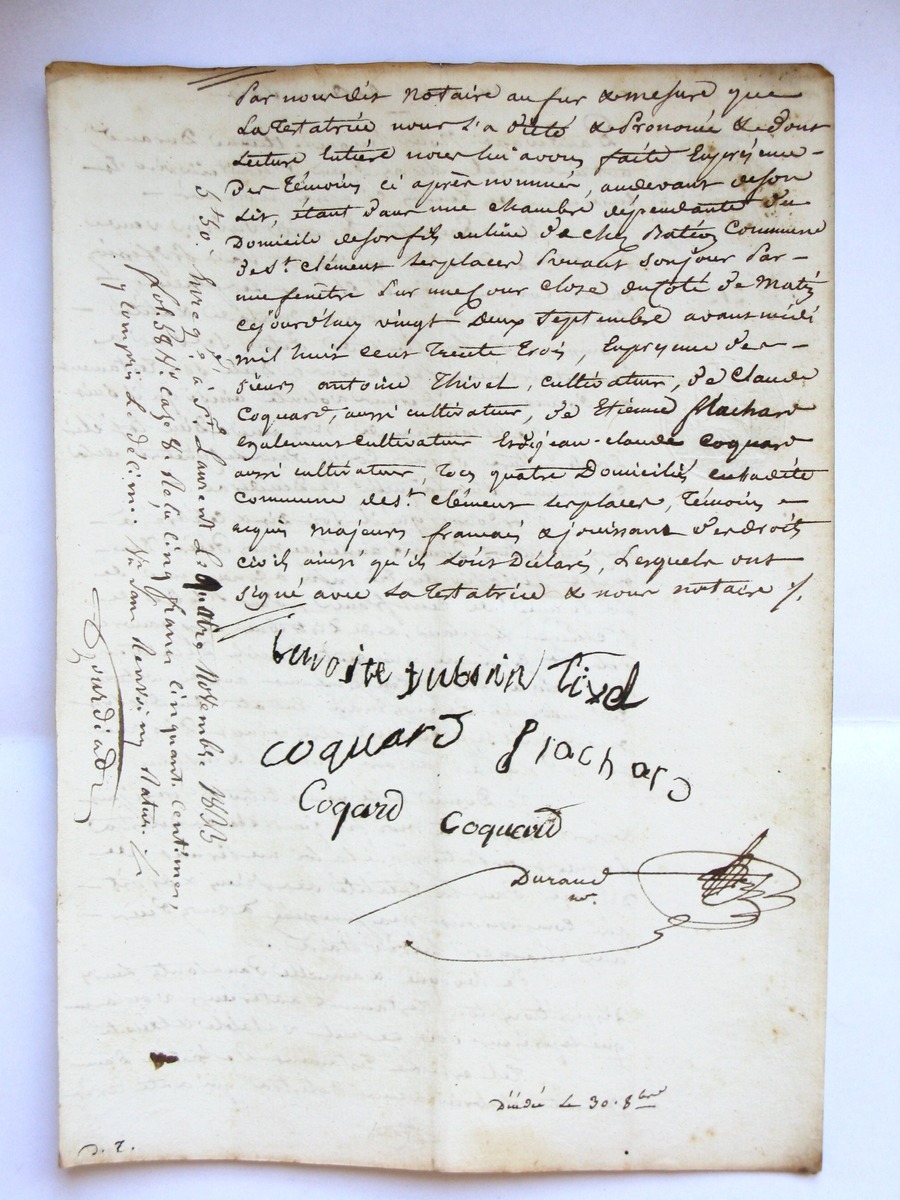 Par nous dit Notaire au fur & mesure que
La Testatrice nous l'a dicté & Prononcé & dont
Lecture Entière nous lui avons faite En présence
Des Témoins ci après nommés, au devant de son
Lit, étant dans une chambre dépendante du
Domicile de son fils au lieu de chez Commune
de St. Clément les places Prenant son jour Par
une fenêtre sur une Cour close du Coté de Matin
Cejourd'huy vingt Deux Septembre avant midi
mil huit cent Trente Trois, En présence des
sieurs antoine Thivel, cultivateur, de Claude
Coquard, aussi cultivateur, de Etienne flachard
Egalement Cultivateur Et de jean-claude coquard
aussi cultivateur, Tous quatre Domiciliés en ladite
commune de St. Clément les places, Témoins
requis majeurs français & jouissant des droits
civils ainsi qu'ils L'ont Déclaré, Lesquels ont
signé avec La Testatrice & nous notaire /.
benoite Tixel
coquard flachard
Cogard coquard
Durand
nre.
5f 50. Enregé. à St. Laurent Le quatre Novembre 1833
fol. 58 case 8. Reçu cinq francs cinquante centimes
y compris Le décime.
Le 30. 8bre
D. T.